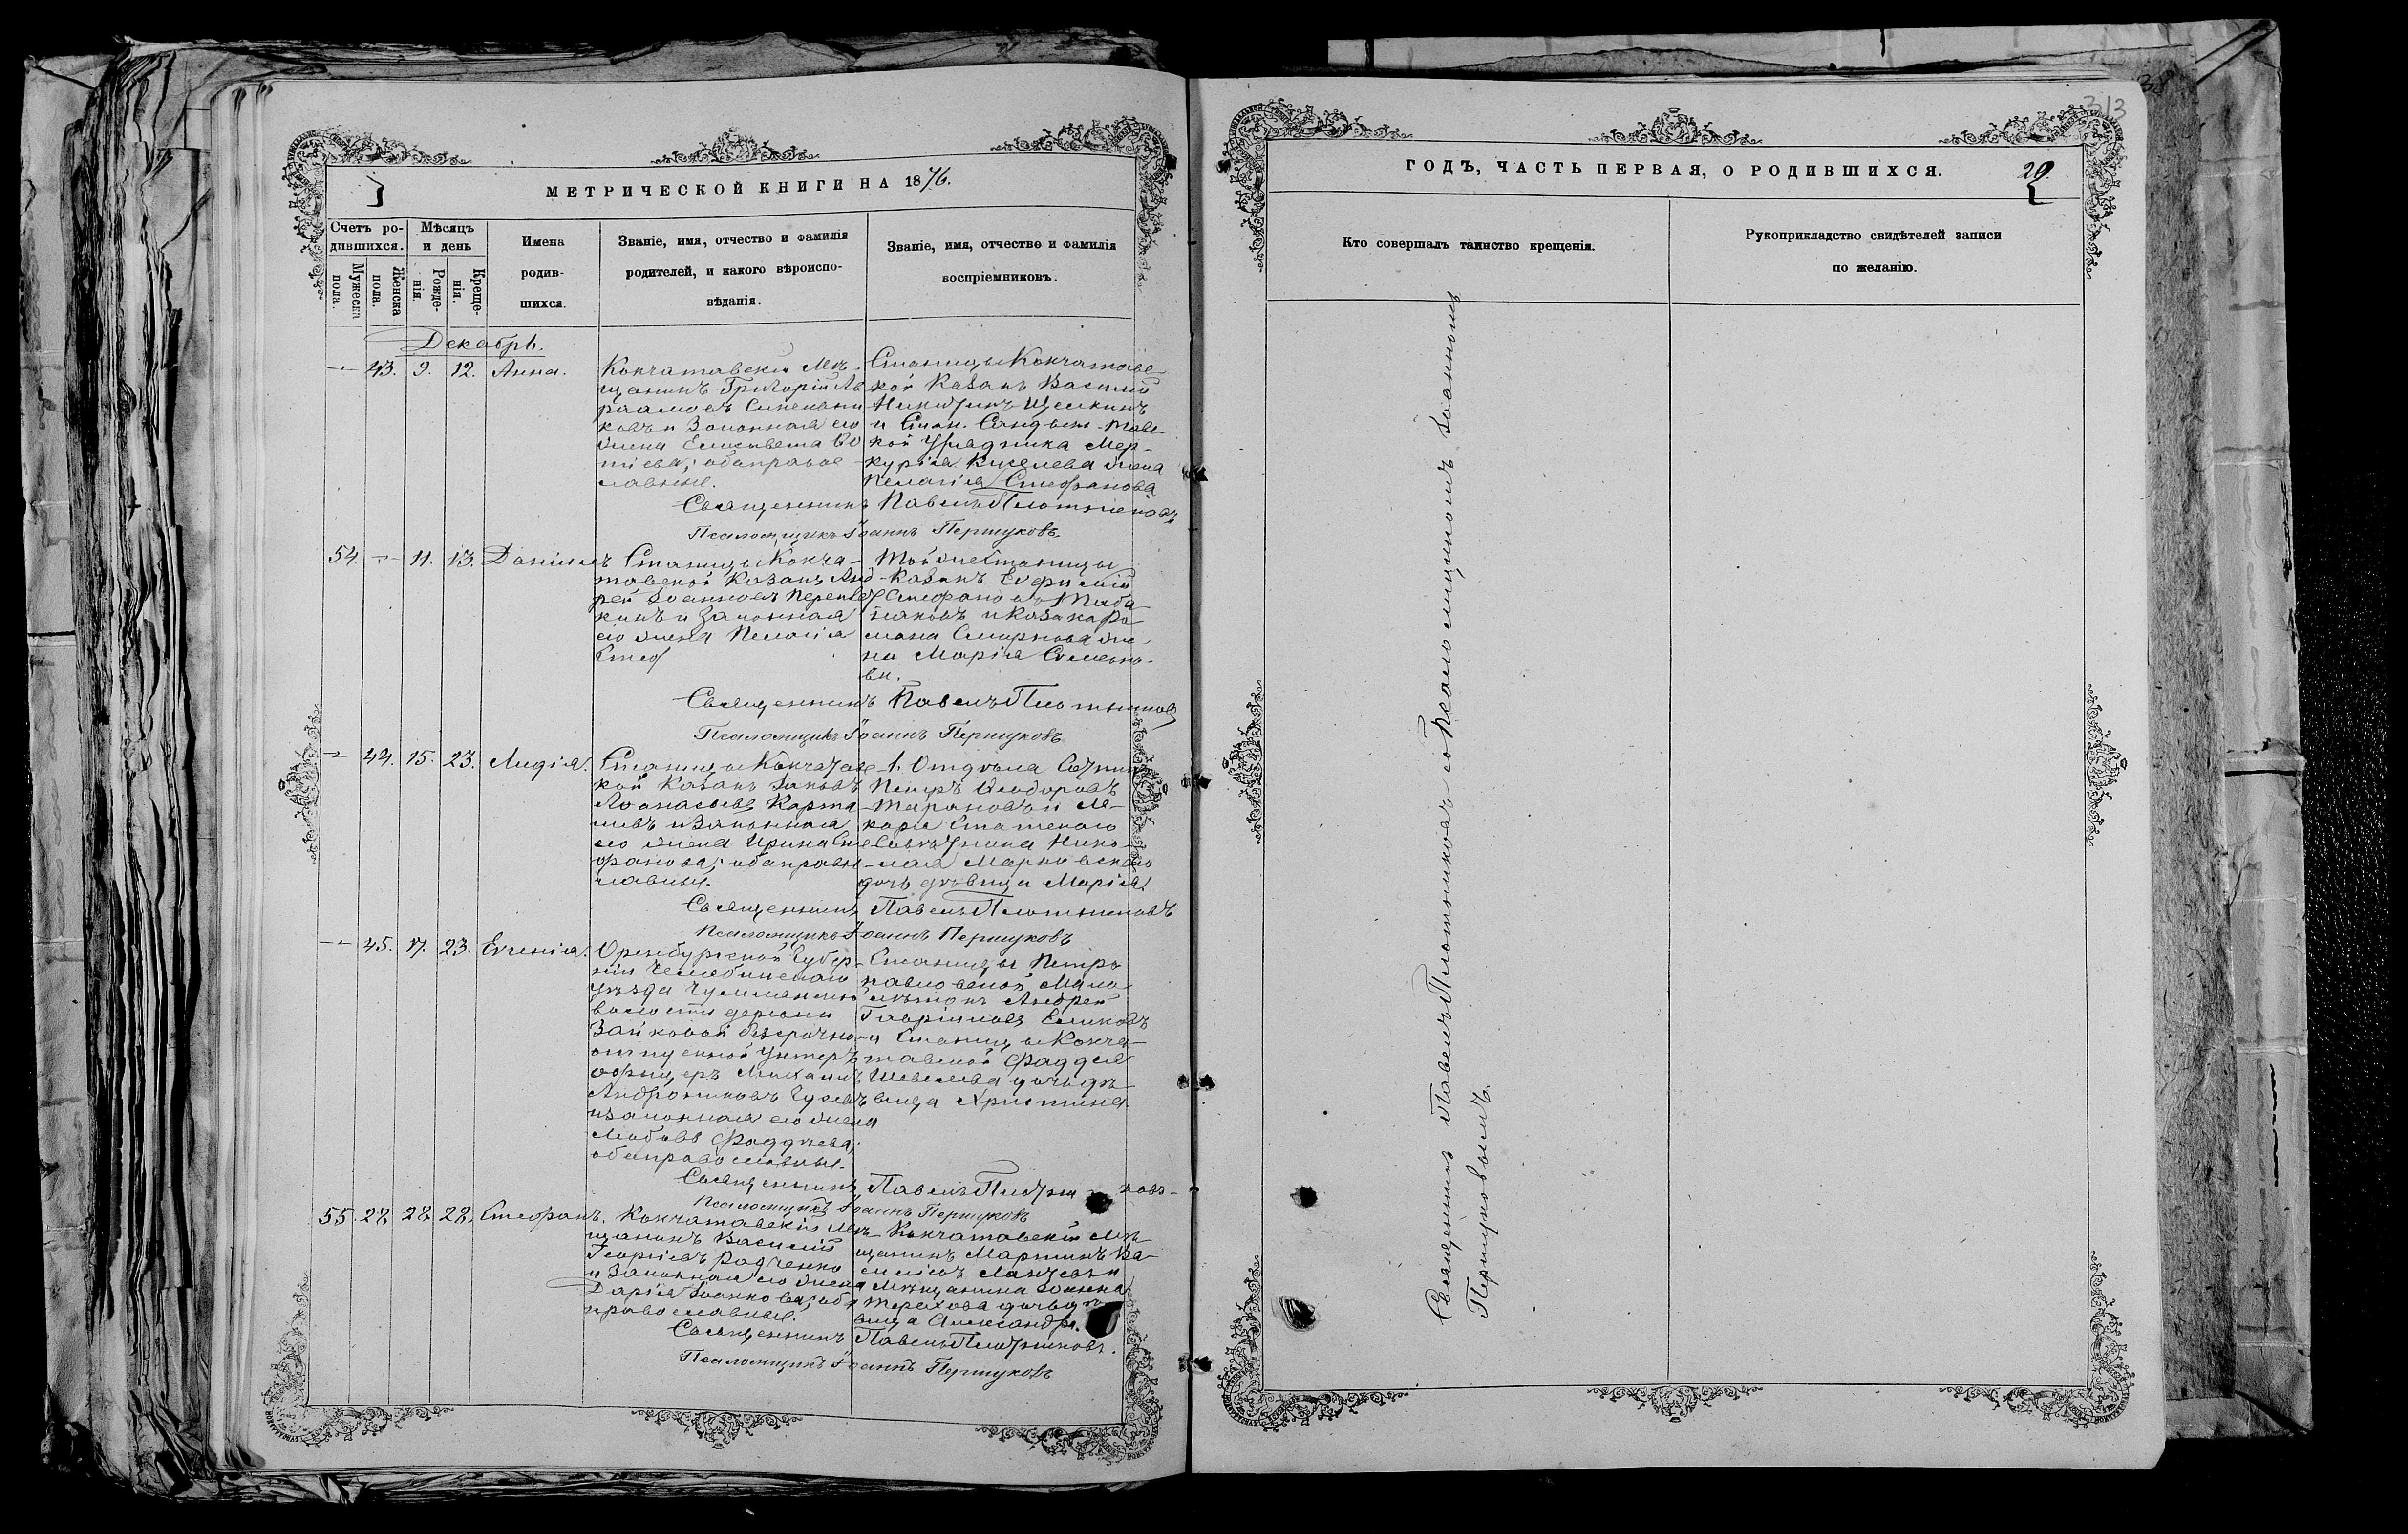 МЕТРИЧЕСКОЙ КНИГИ НА 1876.
Счетъ родившихся.
Мужеска пола.
Женска пола.
Мѣсяцъ и день
Рожденія.
Крещенія.
Имена родившихся.
Званіе, имя, отчество и фамилія родителей, и какого вѣроисповѣданія.
Званіе, имя, отчество и фамилія воспріемниковъ.
Декабрь.
43. 9. 12. Анна.
Кокчатавскій Мѣ-
щанинъ Григорій Ав
раамовъ
ковъ и Законная его
жена Елисавета
; оба право
славные.
Станицы Кокчатав-
кой Казакъ Василій
Никитинъ Щемкинъ
и Стан.
кой Урядника Мер-
курія Киселева жена
Пелагія Стефанова
Священникъ Павелъ Плотниковъ
Псаломщикъ Іоаннъ Першуковъ.
54. 11. 13. Даніилъ
Станицы Кокча-
тавской Казакъ Анд
рей Іоанновъ
кинъ и Законная
его жена Пелагія
Стеф
Той же Станицы
Казакъ Евфимій
Стефановъ
и Казака Ро
мана Смирнова же
на Марія Семено-
ва.
Священникъ Павелъ Плотниковъ
Псаломщикъ Іоаннъ Першуковъ
44. 15. 23. Лидія.
Станицы Кокчатав
кой Казакъ Іаковъ
Аѳанасьевъ Карта
и Законная
его жена Ирина Сте
фанова; оба право
славные.
1. Отдѣла Сотник
Петръ Ѳеодоровъ
и Ле-
каря Статскаго
Совѣтника Нико-
лая Марковскаго
дочь дѣвица Марія
Священникъ Павелъ Плотниковъ
Псаломщикъ Іоаннъ Першуковъ
45. 17. 23. Евгенія.
Оренбургской Губер
ніи Челябинскаго
уѣзда
волости деревни
Зайковой безсрочно
отпускной Унтеръ
офицеръ Михаилъ
Андрониковъ Гусевъ
и законная его жена
Любовь Фаддѣева;
оба православные.
Станицы Петро
павловской Мало
лѣтокъ Андрей
Гавріиловъ
и Станицы Кокча-
тавской Фаддея
Шевелева дочь дѣ-
вица Христина.
Священникъ Павелъ Плотниковъ
Псаломщикъ Іоаннъ Першуковъ
55. 28. 28. 28. Стефанъ.
Кокчатавскій Мѣ-
щанинъ Василій
Георгіевъ Радченко
и Законная его жена
Дарія Іоаннова; оба
православные.
Кокчатавскій Мѣ
щанинъ Мартинъ Ва-
силіевъ
Мѣщанина Іоанна
Терехова дочь дѣ
вица Александра.
Священникъ Павелъ Плотниковъ.
Псаломщикъ Іоаннъ Першуковъ
313
ГОДЪ, ЧАСТЬ ПЕРВАЯ, О РОДИВШИХСЯ.
20.
Кто совершалъ таинство крещенія.
Рукоприкладство свидѣтелей записи
по желанію.
Священникъ Павелъ Плотниковъ съ Псаломщикомъ Іоанномъ
Першуковымъ.